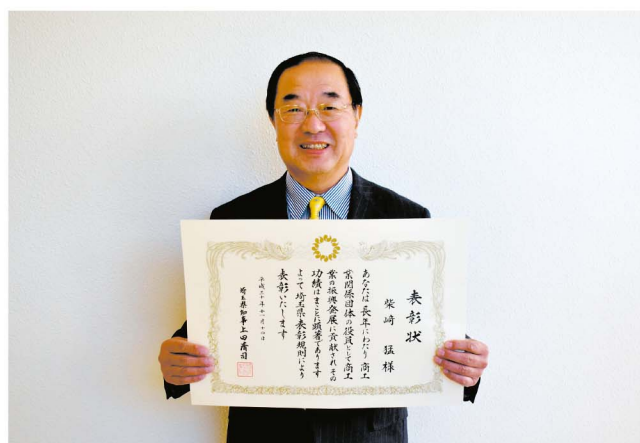 表彰状
柴崎 猛 様
あなたは長年にわたり商工
業関係団体の役員として商工
業の振興発展に貢献されその
功績はまことに顕著であります
よって埼玉県表彰規則により
表彰いたします
平成二十年十一月十四日
埼玉県知事上田清司